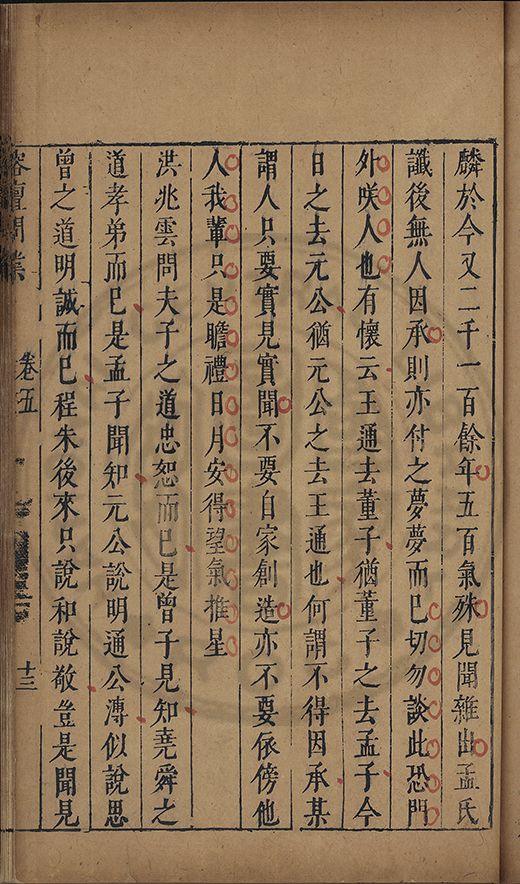 麟於今又二千一百餘年五百氣殊見聞雜出孟氏
讖後無人因承則亦付之夢夢而巳切勿談此恐門
外咲人也有懷云王通去董子猶董子之去孟子今
日之去元公猶元公之去王通也何謂不得因承某
謂人只要實見實聞不要自家創造亦不要依傍他
人我輩只是瞻禮日月安得望氣推星
洪兆雲問夫子之道忠恕而巳是曾子見知堯舜之
道孝弟而巳是孟子聞知元公說明通公溥似說思
曾之道明誠而巳程朱後來只說和說敬豈是聞見
榕壇問業
卷五
十三